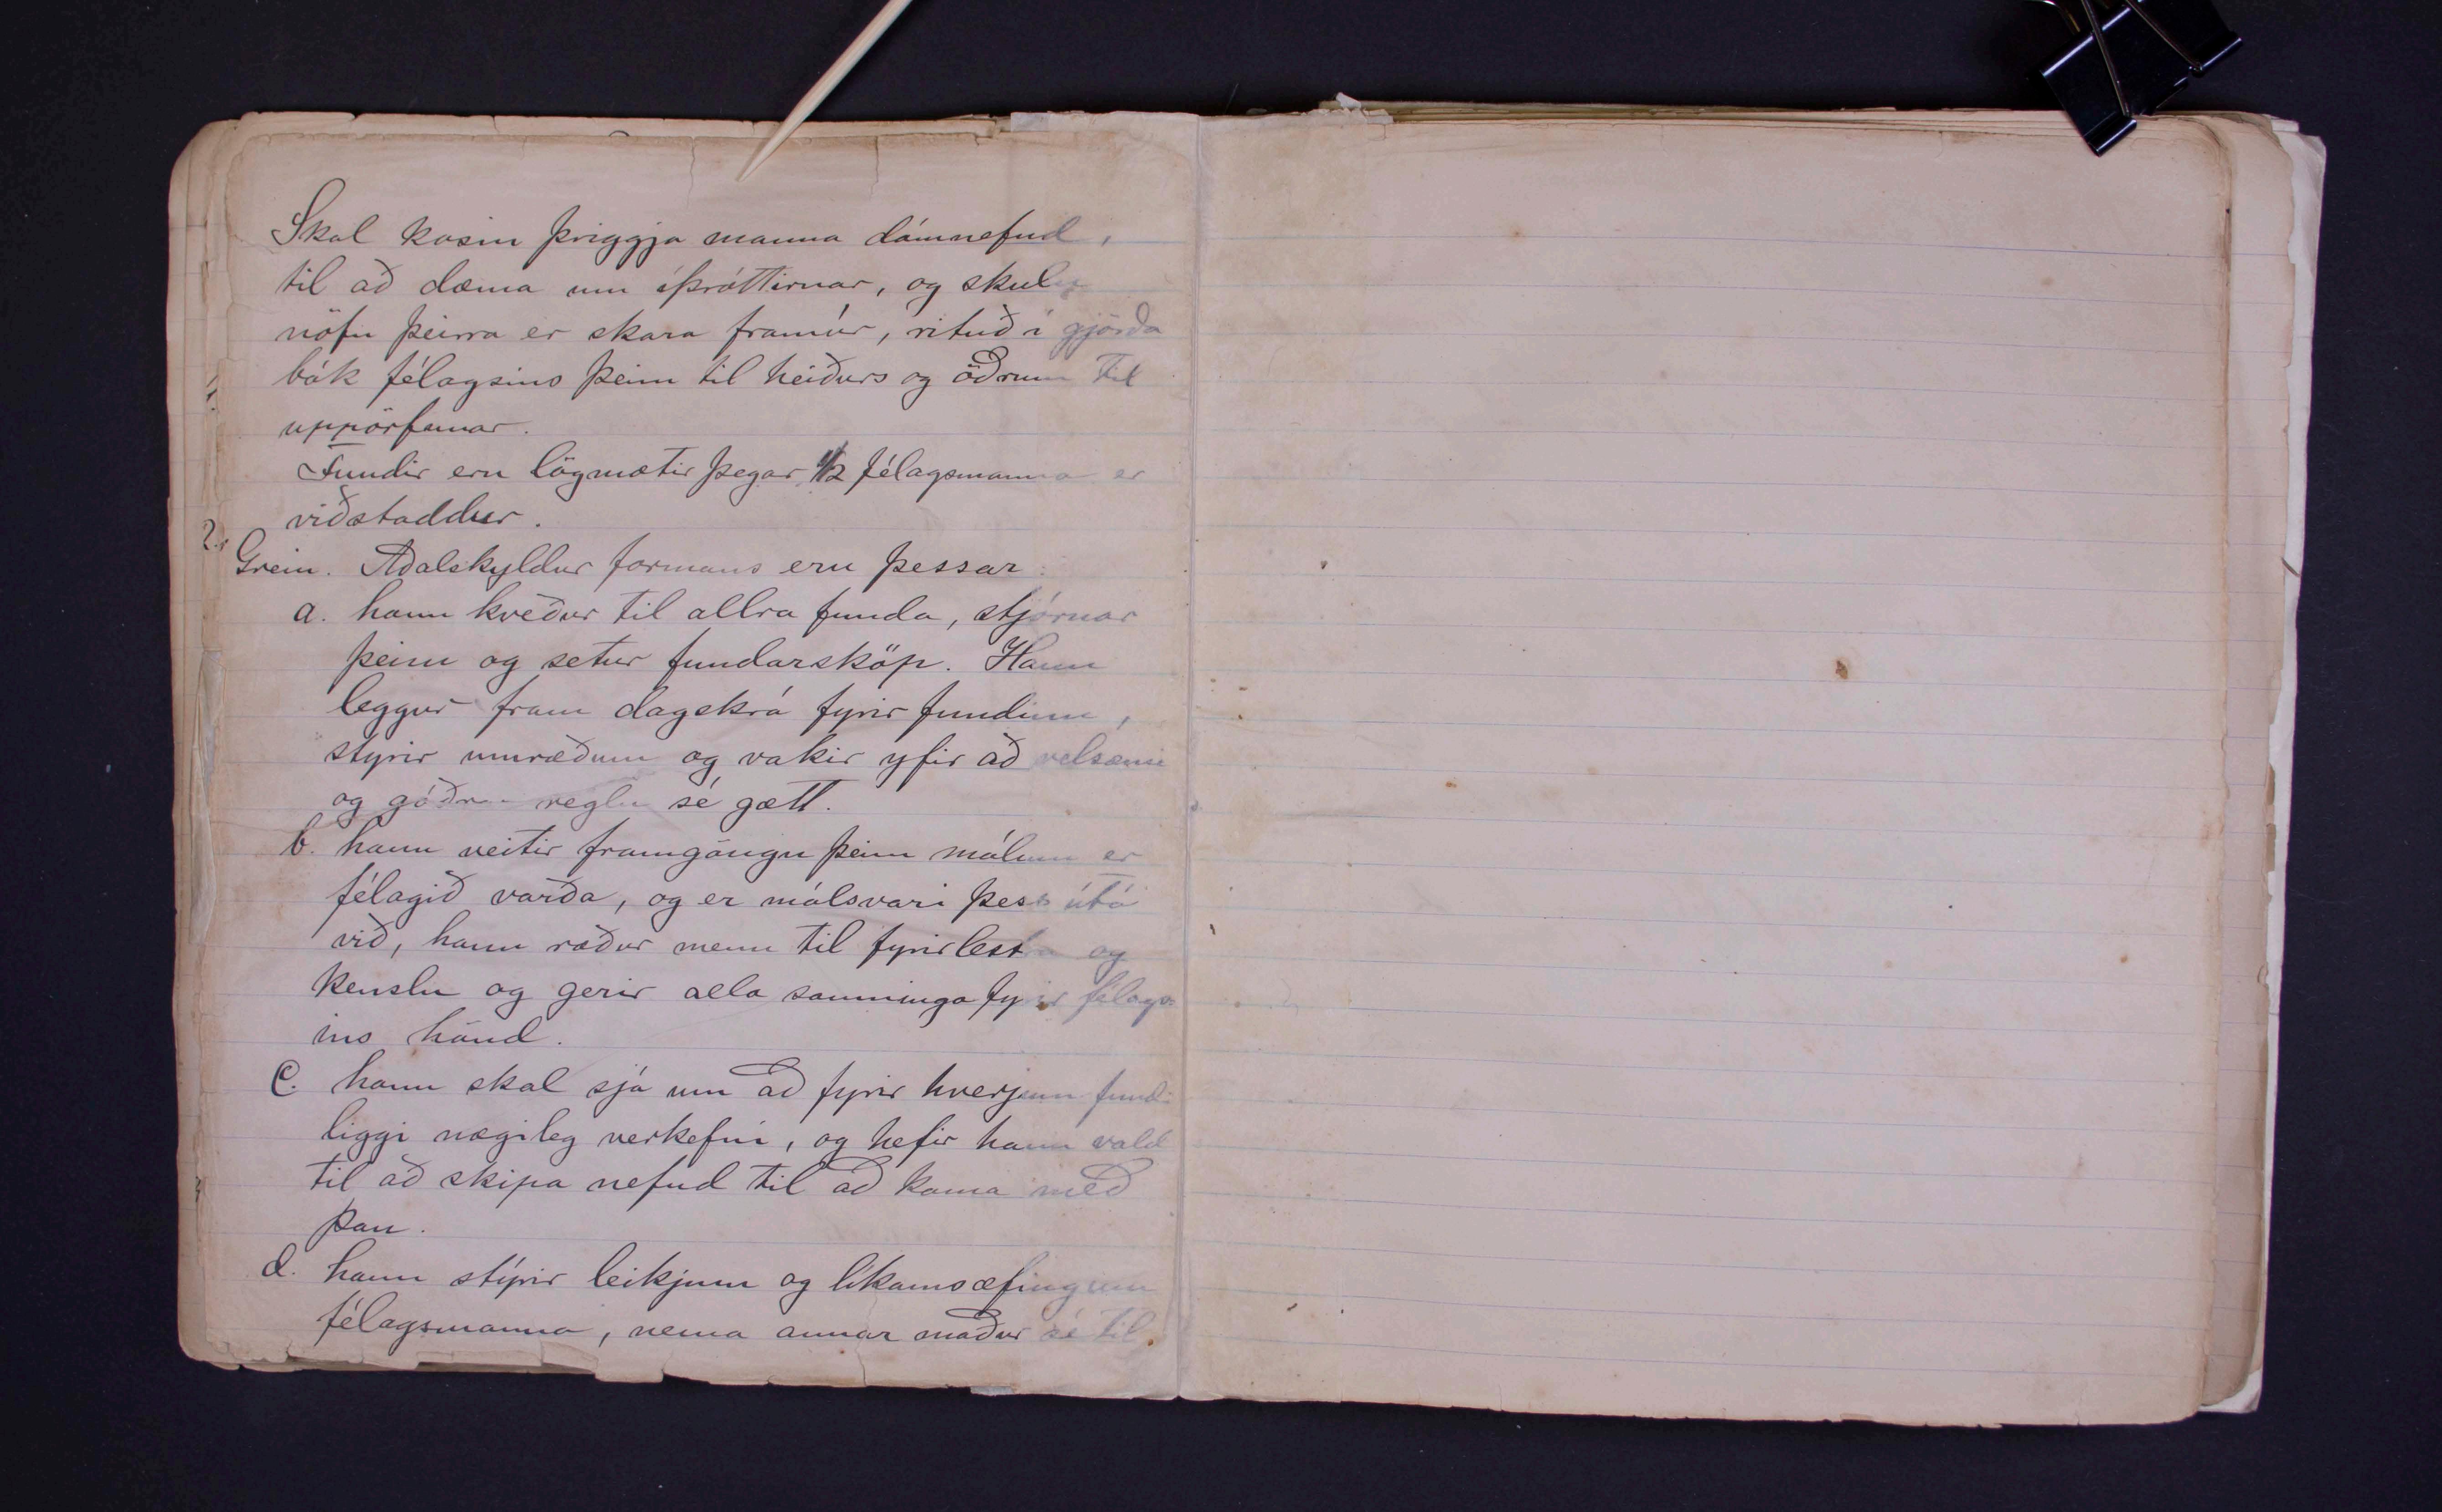 Skal kosin þriggja manna dómnefnd,
til að dæma um íþróttirnar, og skulu
nöfn þeirra er skara framúr, rituð í gjörða
bók félagsins þeim til heiðurs og öðrum til
uppörfunar.
Fundir eru lögmætir þegar 1/2 félagsmanna er
viðstaddur.
2. Grein. Aðalskyldur formans eru þessar:
a. hann kveður til allra funda, stjórnar
þeim og setur fundarsköp. Hann
leggur fram dagskrá fyrir fundinn,
styrir umræðum og vakir yfir að velsæmi
og góðri reglu sé gætt.
b. hann veitir framgöngu þeim málum er
félagið varða, og er málsvari þess útá
við, hann ræður menn til fyrirlestra og
kenslu og gerir alla samninga fyrir félags-
ins hönd.
C. hann skal sjá um að fyrir hverjum fundi
liggi nægileg verkefni, og hefir hann vald
til að skipa nefnd til að koma með
þau.
d. hann stýrir leikjum og líkamsæfingum
félagsmanna, nema annar maður sé til